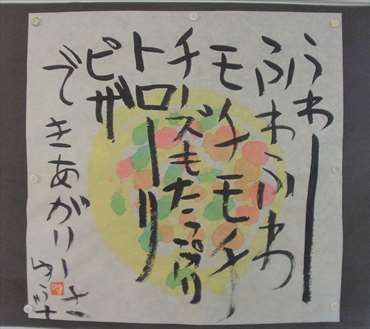 うわー
ふわふわ
モチモチ
チーズもたっぷり
トローリ
ピザ
できあがりー